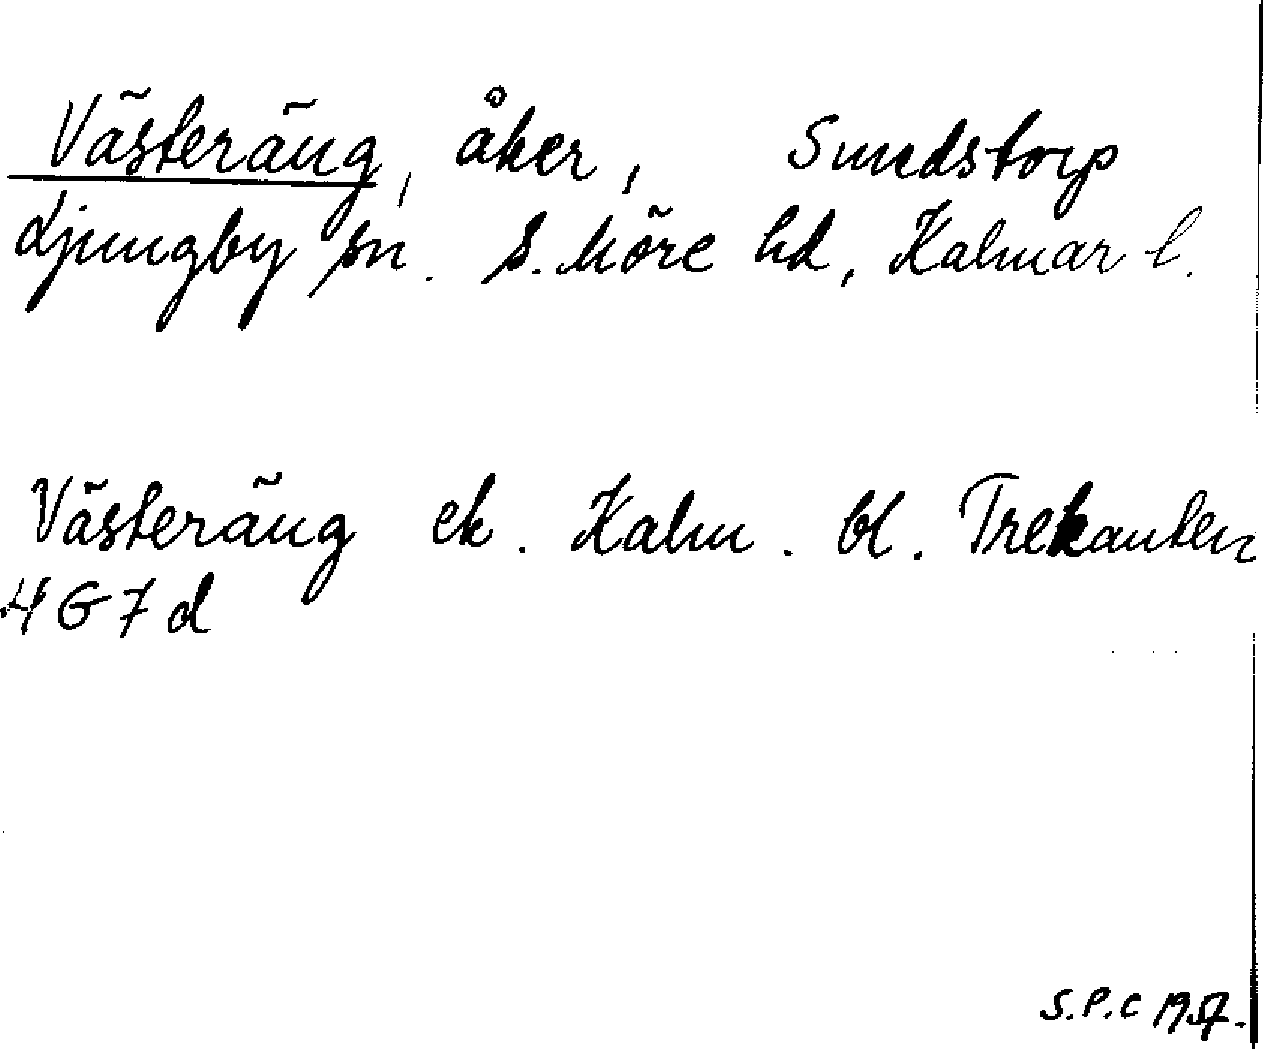 Västeräng, åker, Smedstorp
Ljungby sn. S. Möre hd, Kalmar l.
Västeräng ek. Kalm. bl. Trekanten
4 G 7 d
S.P.C 1957.